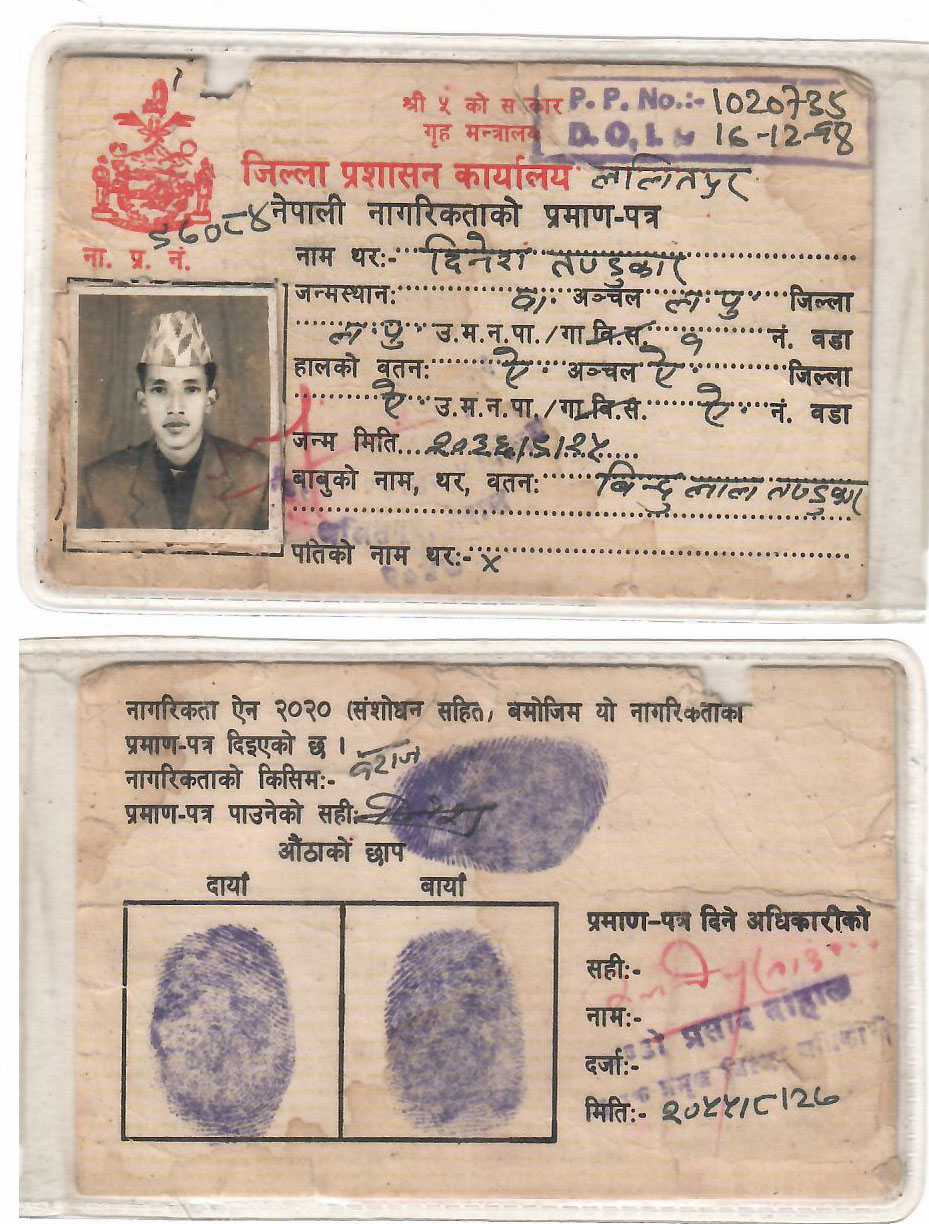 श्री ५ को सरकार
गृह मन्त्रालय
P. P. No.:- 1020735
D.O.I. 16-12-98
जिल्ला प्रशासन कार्यालय ललितपुर
नेपाली नागरिकताको प्रमाण-पत्र
ना. प्र. नं.
नाम थर:- दिनेश तण्डुकार
जन्मस्थान: वा. अञ्चल ल.पु. जिल्ला
ल.पु. उ.म.न.पा./गा.वि.स. नं. वडा
हालको वतन: ऐ. अञ्चल ऐ. जिल्ला
ऐ. उ.म.न.पा./गा.वि.स. ऐ. नं. वडा
जन्म मिति
बाबुको नाम, थर, वतन: बिन्दु लाल तण्डुकार
पतिको नाम थर:- x
नागरिकता ऐन २०२० (संशोधन सहित) बमोजिम यो नागरिकताका
प्रमाण-पत्र दिइएको छ ।
नागरिकताको किसिम:- वंशज
प्रमाण-पत्र पाउनेको सही:-
औंठाको छाप
दायाँ बायाँ
प्रमाण-पत्र दिने अधिकारीको
सही:-
नाम:- प्रसाद दाहाल
दर्जा:-
मिति:- २०५५।८।२७